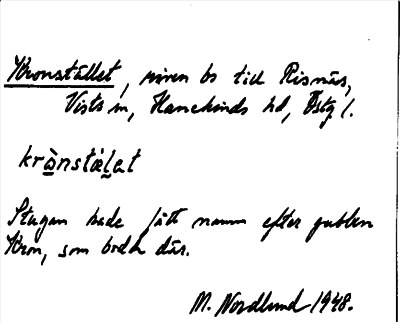 Kronstället, riven bs till Risnäs,
Vists sn, Hanekinds hd, Östg l.
krònstäl̥et
Stugan hade fått namn efter gubben
Kron, som bodde där.
M. Nordlund 1948.